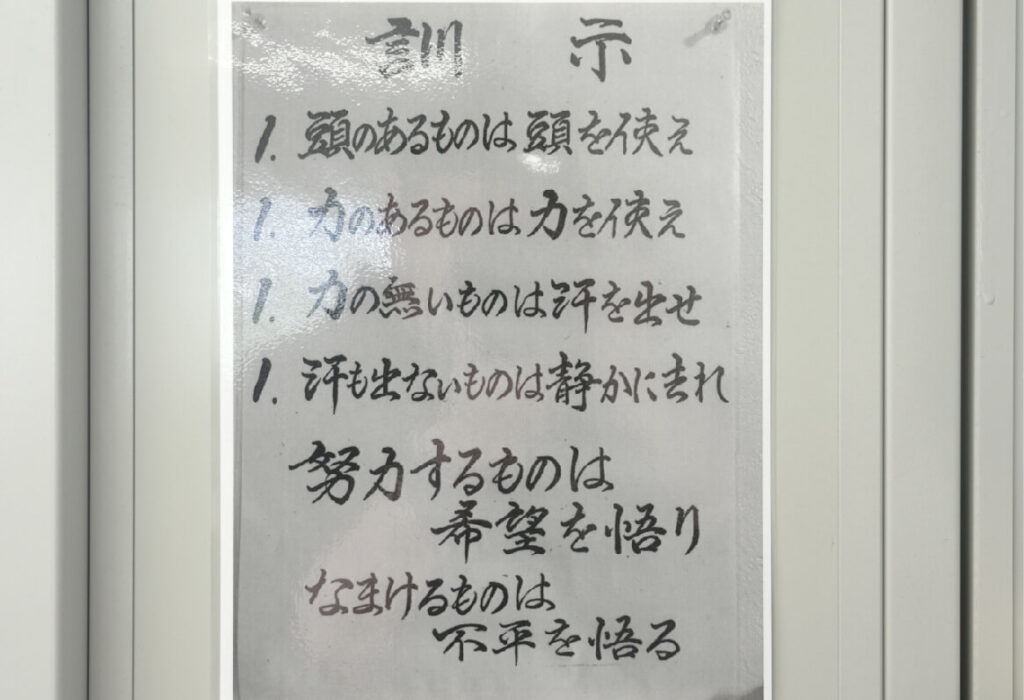 訓 示
1. 頭のあるものは頭を使え
1. 力のあるものは力を使え
1. 力の無いものは汗を出せ
1. 汗も出ないものは静かに去れ
努力するものは
希望を悟り
なまけるものは
不平を悟る